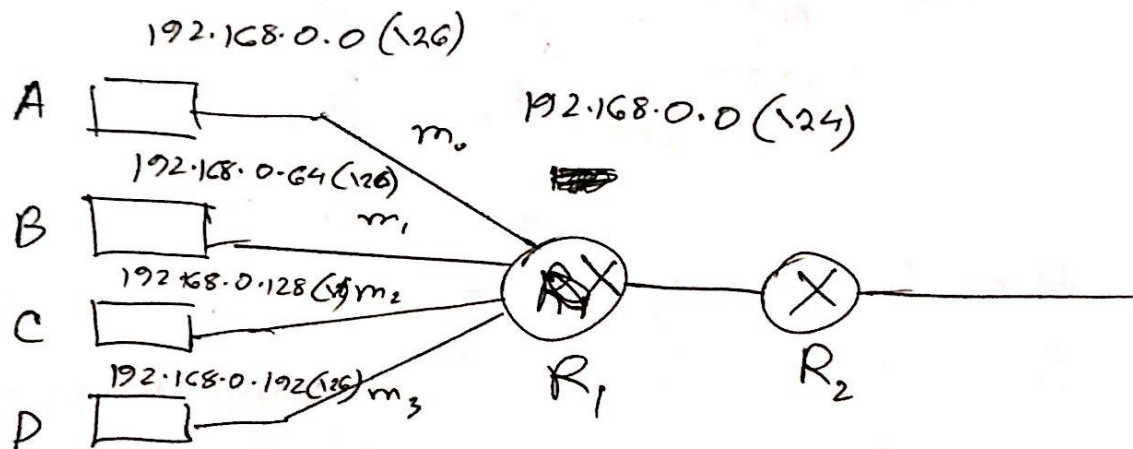 192.168.0.0 (\26)
A
m₀
192.168.0.0 (\24)
192.168.0.64 (\26)
B
m₁
192.168.0.128
m₂
C
192.168.0.192 (\26)
m₃
D
R₁
R₂